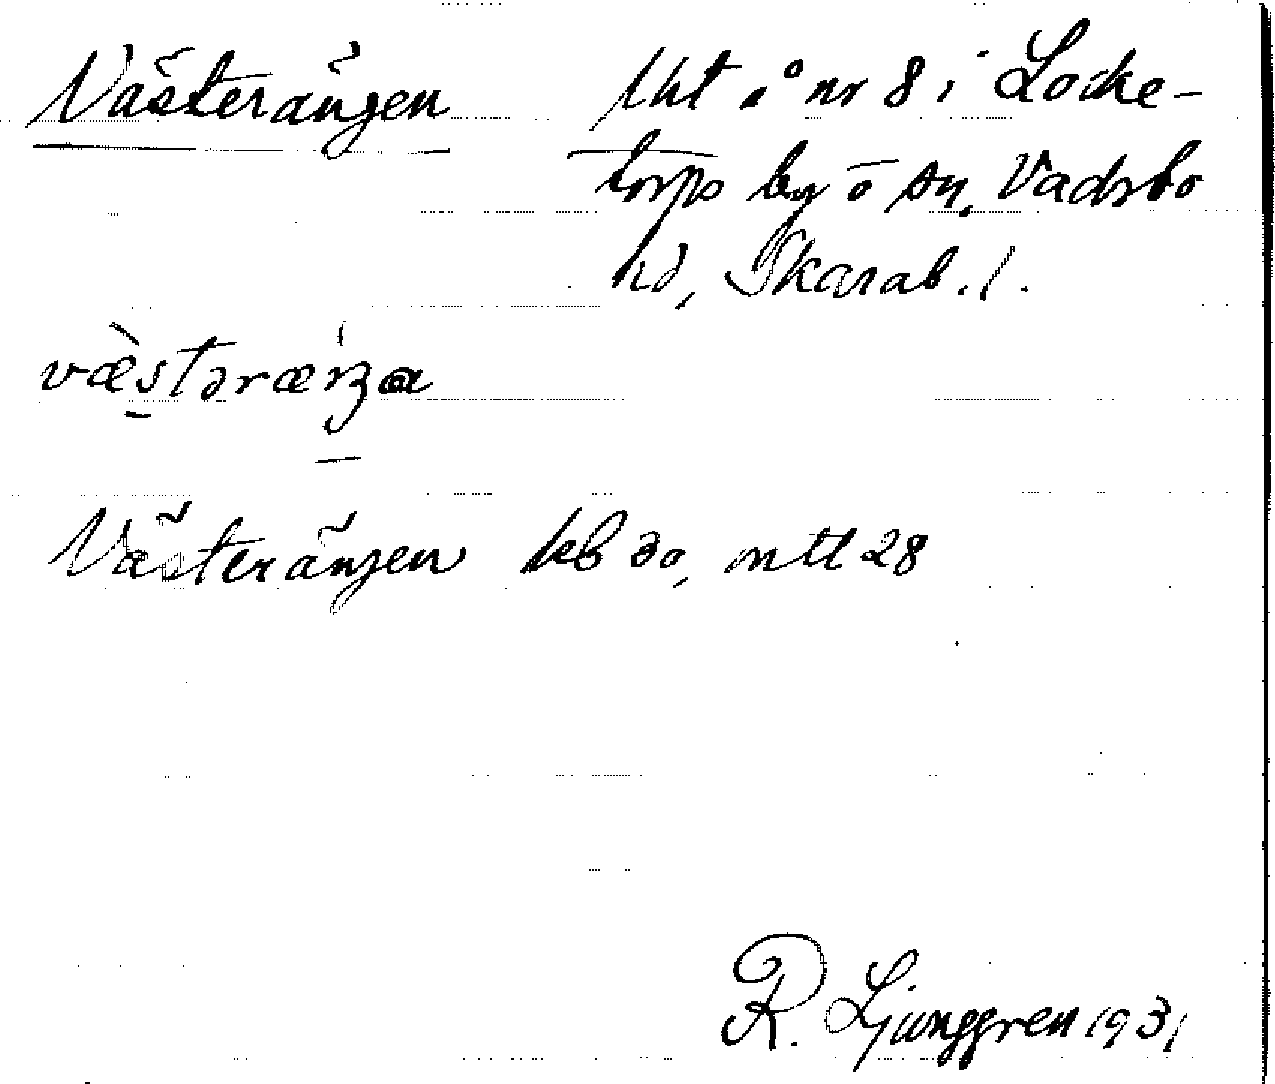 Västerängen
tht å nr 8 i Locke-
torps by ö sn. Vadsbo
hd, Skarab. l.
væ̀stəræ´ŋa
Västerängen kb 30, mtl 28
R. Ljunggren 1931